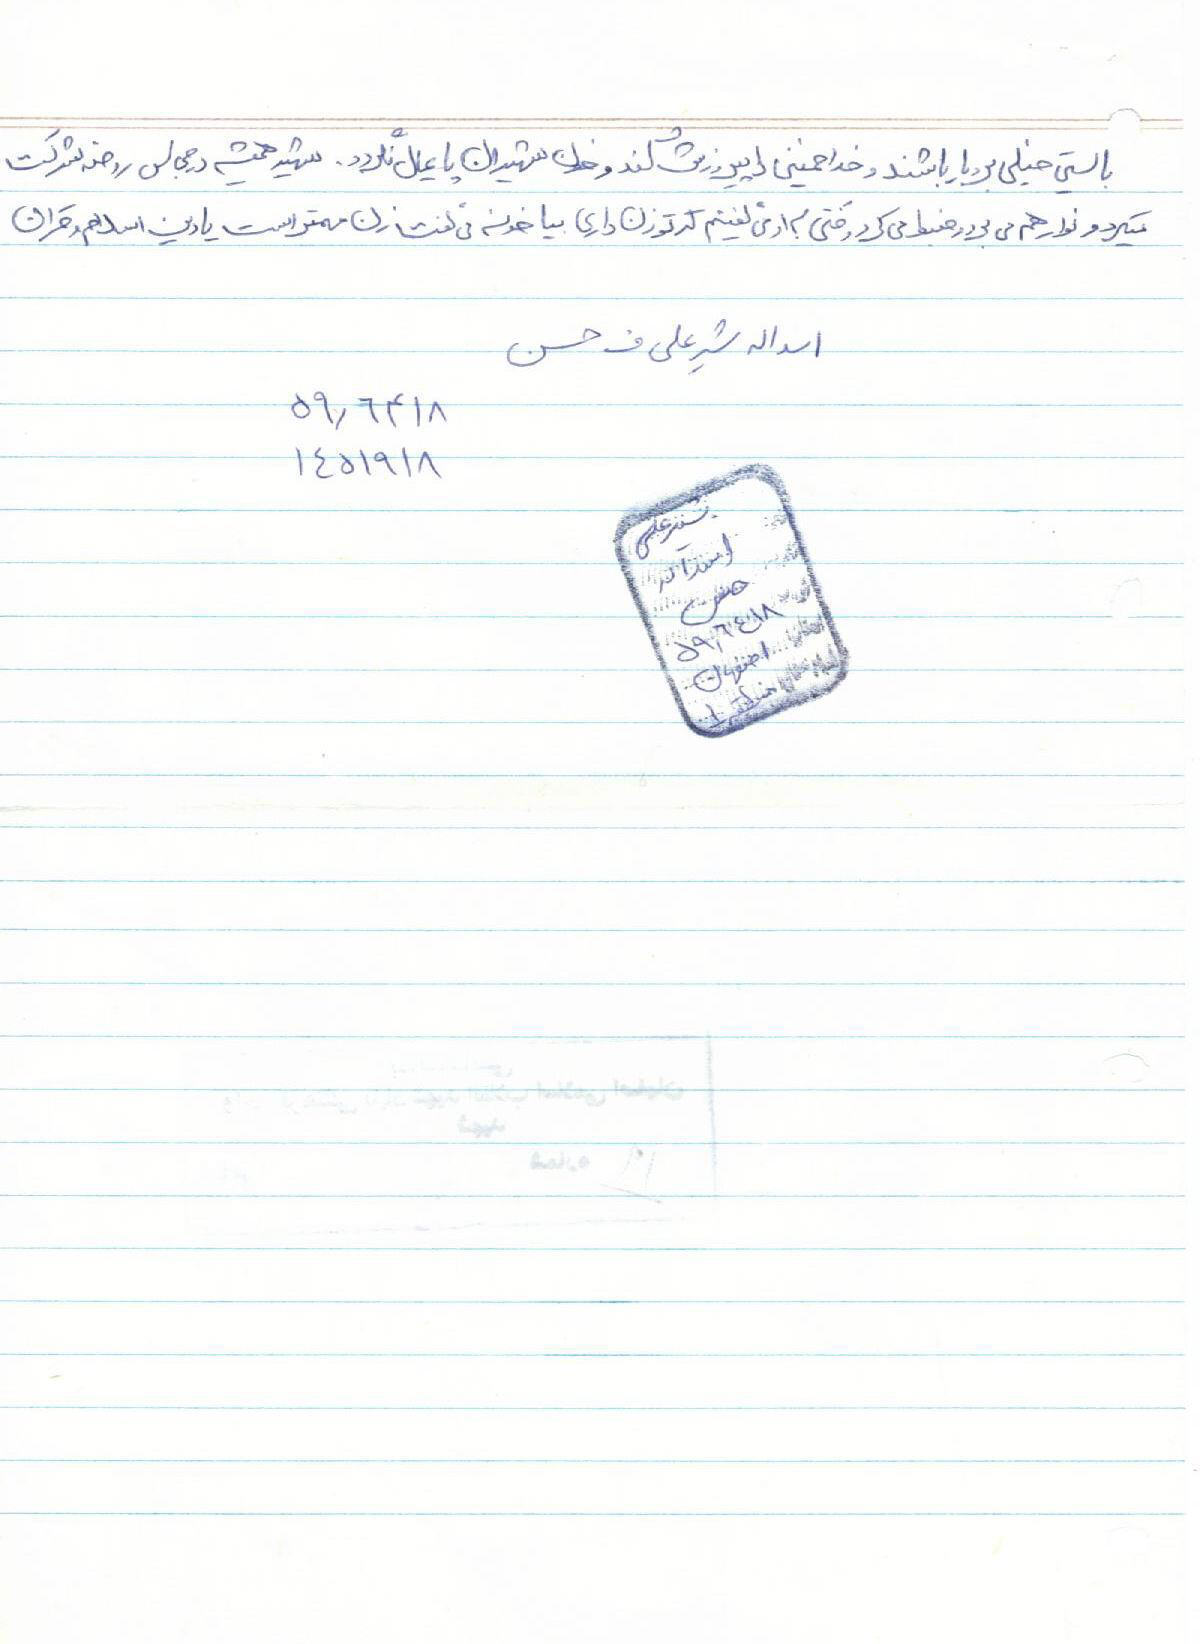 بایستی خیلی بردبار باشند و خدا خمینی را پیروزش کند و خون شهیدان پایمال نگردد. شهید همیشه در مجالس روضه شرکت
میکرد و نوار هم می برد و ضبط می کرد وقتی به او می گفتیم که تو زن داری بیا خونه می گفت زن مهمتر است یا دین اسلام و قران
اسداله شیرعلی ف حسن
۵۹٫۶۴۱۸
۱۴۵۱۹۱۸
شیرعلی
اسداله
حسن
۵۹٫۶۴۱۸
اصفهان
منطقه ۱
شهید
شماره ۱۹